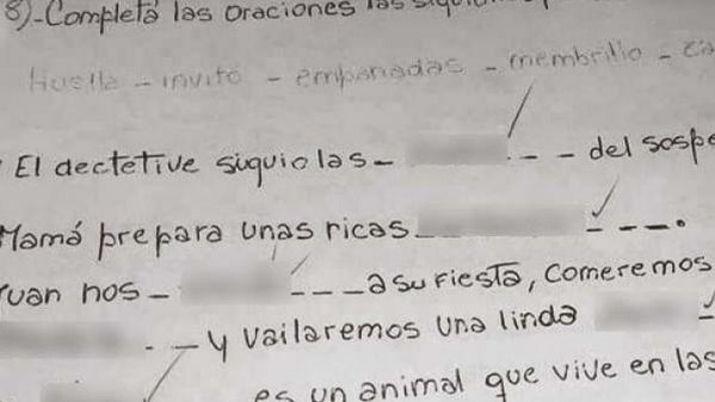 8)-Completá las oraciones las
Huella - invitó - empanadas - membrillo -
El dectetive siguio las - - - del
Mamá prepara unas ricas - - -.
nos - - - - a su fiesta, comeremos
- - y vailaremos una linda -
es un animal que vive en las